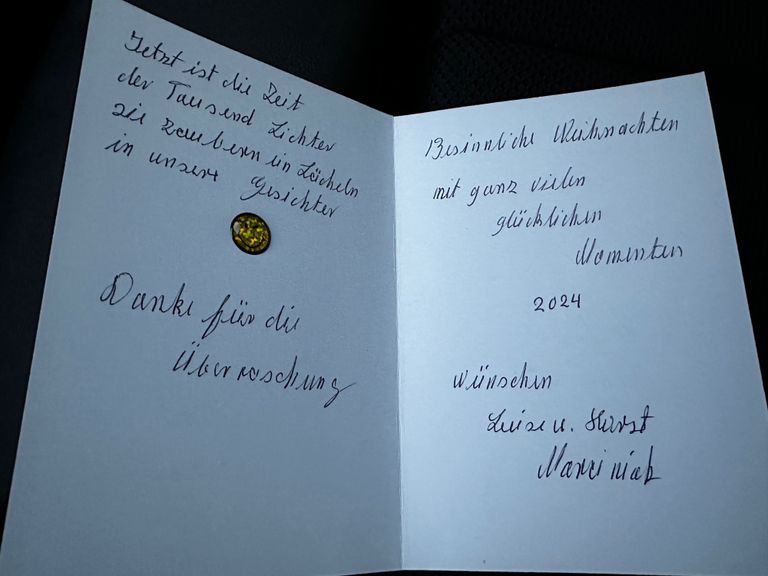 Jetzt ist die Zeit
der Tausend Lichter
sie zaubern ein Lächeln
in unsere Gesichter
Danke für die
Überraschung
Besinnliche Weihnachten
mit ganz vielen
glücklichen
Momenten
2024
wünschen
Luise u. Horst
Marciniak